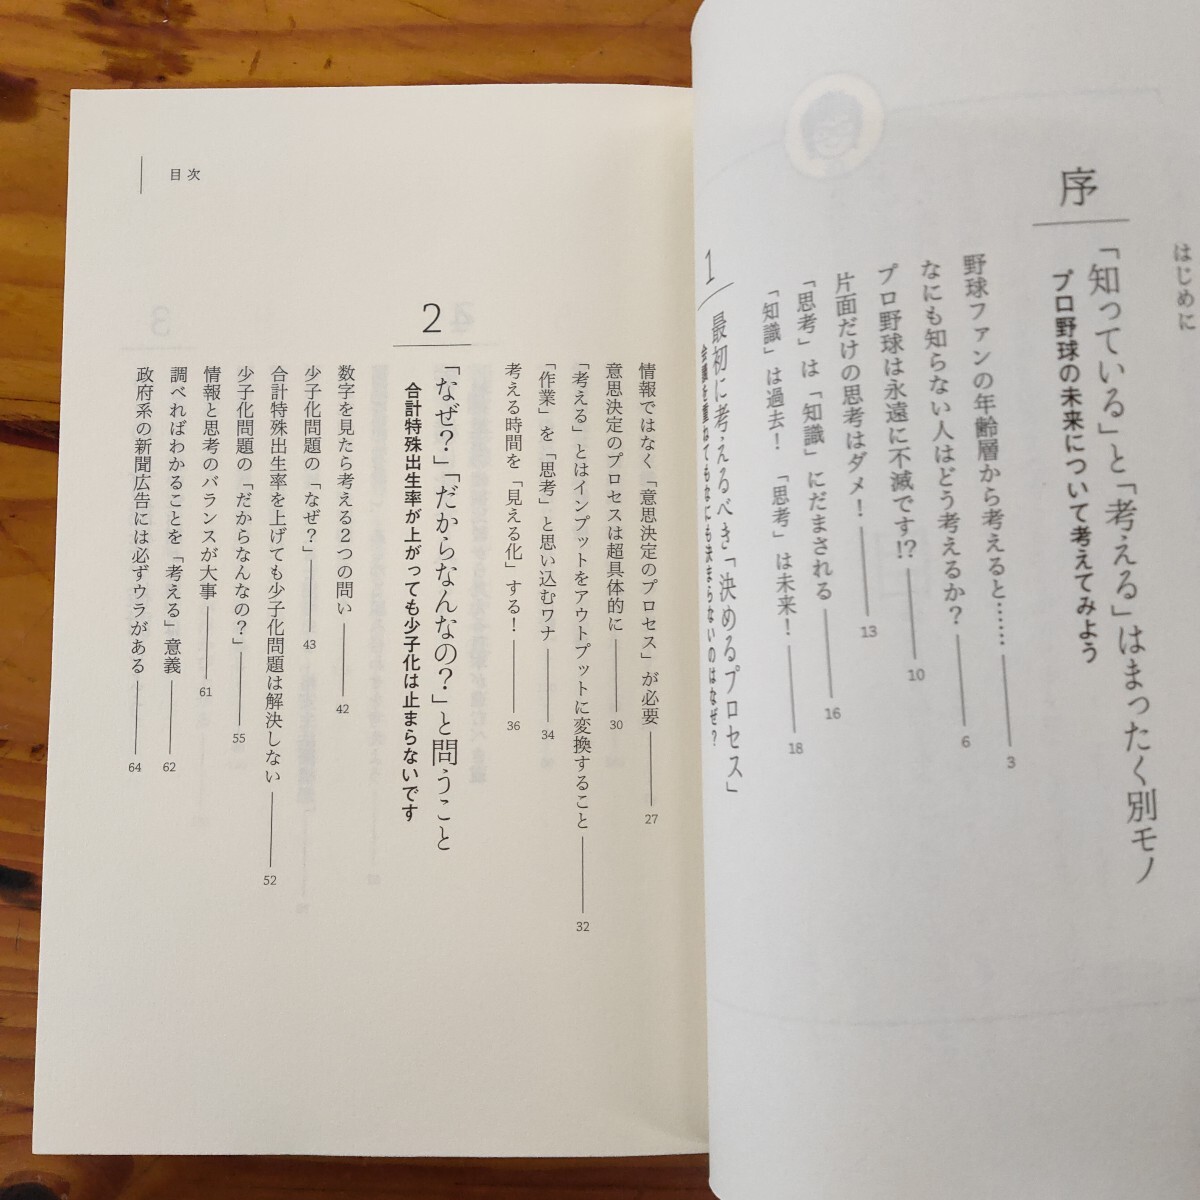 はじめに
序
「知っている」と「考える」はまったく別モノ
プロ野球の未来について考えてみよう
野球ファンの年齢層から考えると…… 3
なにも知らない人はどう考えるか? 6
プロ野球は永遠に不滅です!? 10
片面だけの思考はダメ! 13
「思考」は「知識」にだまされる 16
「知識」は過去! 「思考」は未来! 18
1
最初に考えるべき「決めるプロセス」
会議を重ねてもなにも決まらないのはなぜ?
目次
情報ではなく「意思決定のプロセス」が必要 27
意思決定のプロセスは超具体的に 30
「考える」とはインプットをアウトプットに変換すること 32
「作業」を「思考」と思い込むワナ 34
考える時間を「見える化」する! 36
2
「なぜ?」「だからなんなの?」と問うこと
合計特殊出生率が上がっても少子化は止まらないです
数字を見たら考える2つの問い 42
少子化問題の「なぜ?」 43
合計特殊出生率を上げても少子化問題は解決しない 52
少子化問題の「だからなんなの?」 55
情報と思考のバランスが大事 61
調べればわかることを「考える」意義 62
政府系の新聞広告には必ずウラがある 64